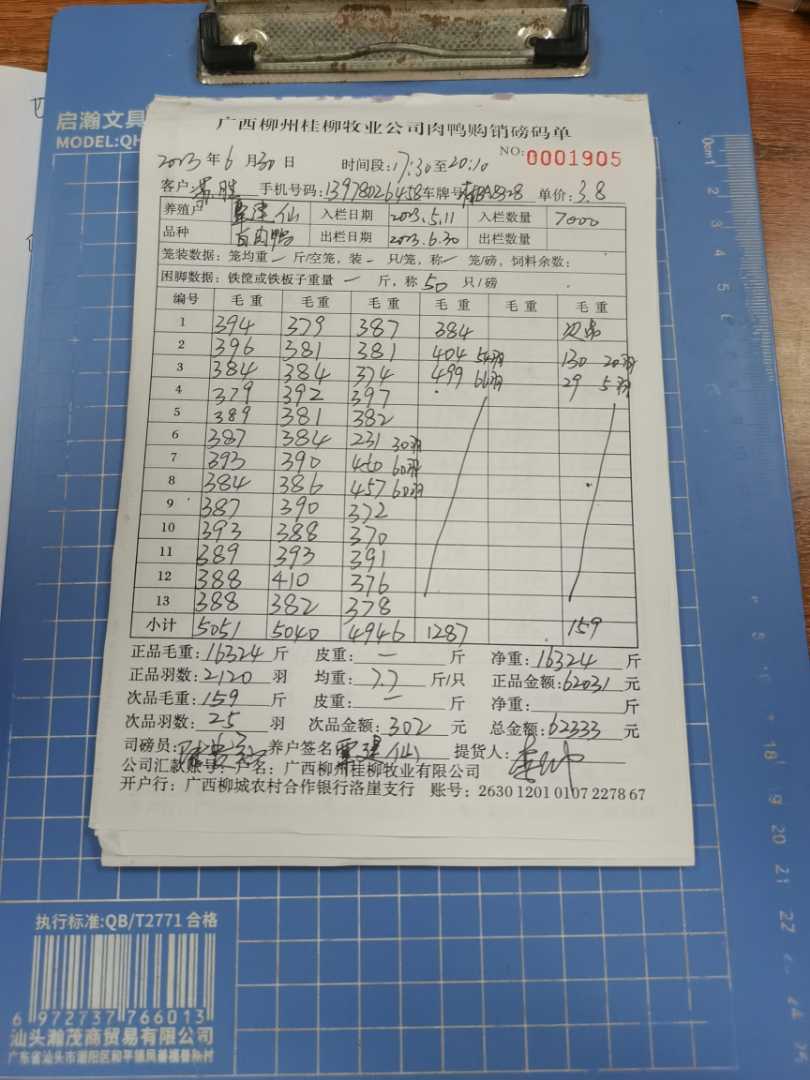 启瀚文具
MODEL:QH
广西柳州桂柳牧业公司肉鸭购销磅码单
2023年6月30日 时间段:17:30至20:10 NO:0001905
客户: 手机号码:13978026458车牌号 单价:3.8
养殖户 覃建仙 入栏日期 2023.5.11 入栏数量 7000
品种 白肉鸭 出栏日期 2023.6.30 出栏数量
笼装数据:笼均重一斤/空笼,装一只/笼,称一笼/磅,饲料余数:
困脚数据:铁筐或铁板子重量一斤,称50只/磅
编号 毛重 毛重 毛重 毛重 毛重 毛重
1 394 379 387 384 次品
2 396 381 381 404 54羽 130 20羽
3 384 384 374 499 66羽 29 5羽
4 379 392 397
5 389 381 382
6 387 384 231 30羽
7 393 390 460 60羽
8 384 386 457 60羽
9 387 390 372
10 393 388 370
11 389 393 391
12 388 410 376
13 388 382 378
小计 5051 5040 4946 1287 159
正品毛重:16324斤 皮重:一斤 净重:16324斤
正品羽数:2120羽 均重:7.7斤/只 正品金额:62031元
次品毛重:159斤 皮重:一斤 净重:斤
次品羽数:25羽 次品金额:302元 总金额:62333元
司磅员: 养户签名:覃建仙 提货人:
公司汇款账号:户名:广西柳州桂柳牧业有限公司
开户行:广西柳城农村合作银行洛崖支行 账号:2630 1201 0107 2278 67
执行标准:QB/T2771 合格
6 972737 766013
汕头瀚茂商贸易有限公司
0cm 1 2 3 4 5 6
18 19 20 21 22